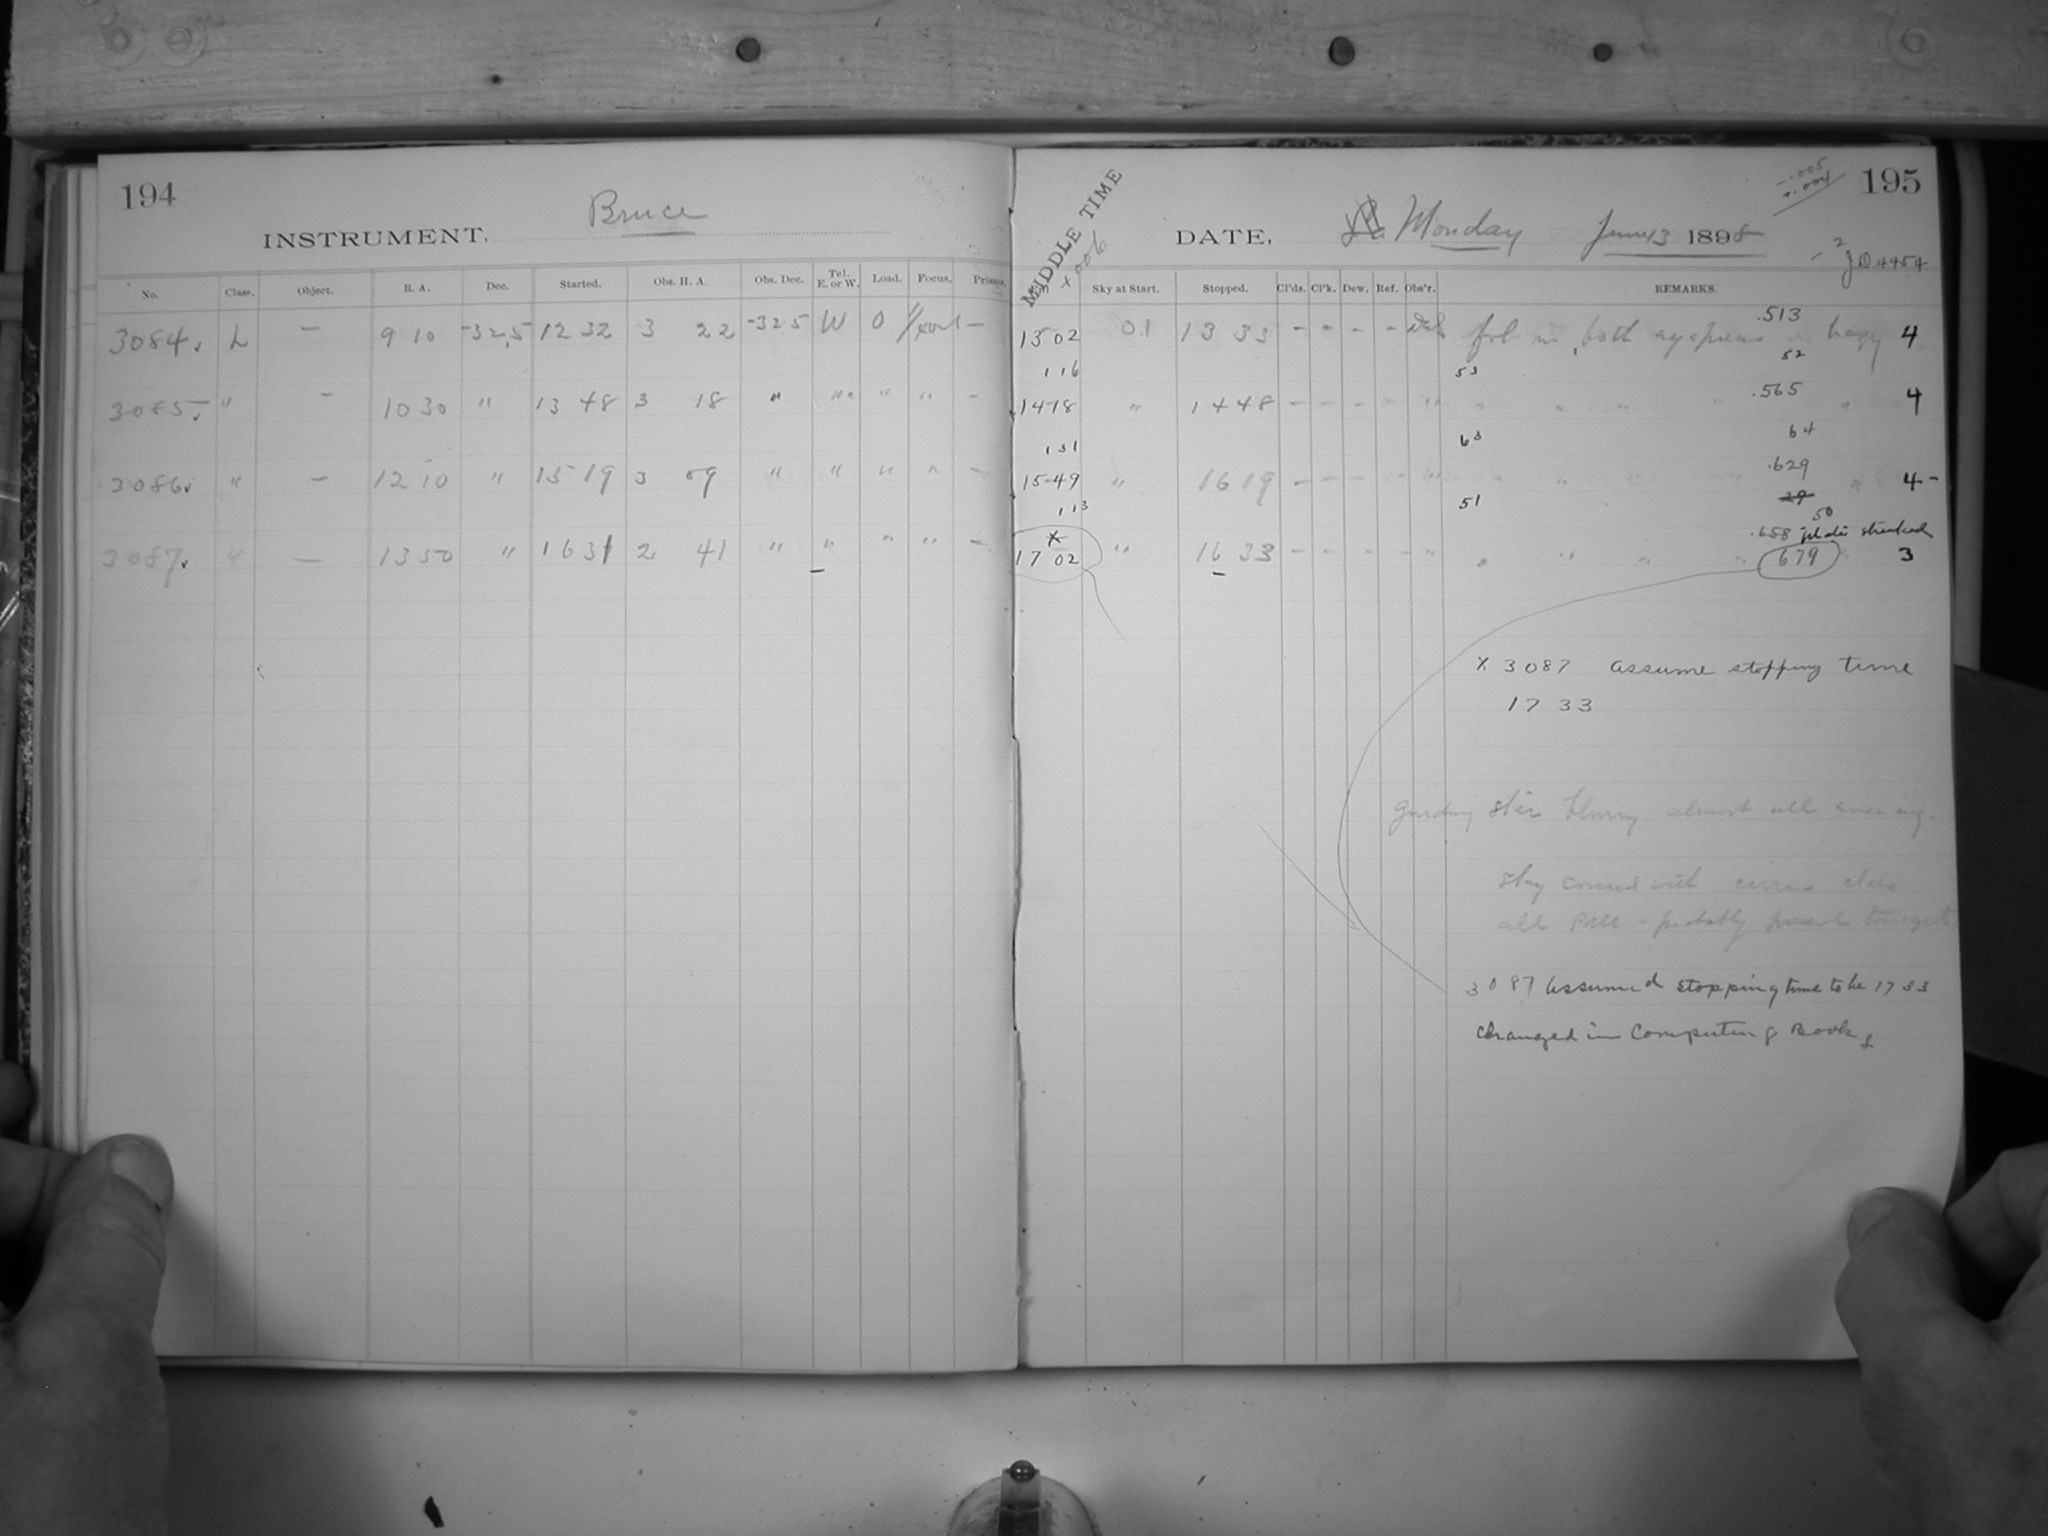 194
INSTRUMENT, Bruce
No. Class. Object. R. A. Dec. Started. Obs. H. A. Obs. Dec. Tel. E. or W. Load. Focus. Prisms.
3084. L — 9 10 -32.5 12 32 3 22 -32 5 W 0 —
3085. " - 10 30 " 13 48 3 18 " " " " -
3086. " - 12 10 " 15 19 3 09 " " " " -
3087. " — 13 50 " 16 31 2 41 " " " " -
195
-.005
+.004
MIDDLE TIME
+.006
DATE, Monday June 13 1898
JD 4454
Sky at Start. Stopped. Cl'ds. Cl'k. Dew. Ref. Obs'r. REMARKS.
.513
13 02 0.1 13 33 - - - - 4
52
1 16 53
.565
14 18 " 14 48 - - - - " " " " " " 4
64
1 31 63
.629
15 49 " 16 19 - - - - " " " " " 4-
1 13 51 29
50
x .658 plate streaked
17 02 " 16 33 - - - - " " " " " 679 3
x 3087 assume stopping time
17 33
Guiding star blurry almost all evening.
sky covered with cirrus clds
all - probably present tonight
3087 Assumed stopping time to be 17 33
changed in Computing Book